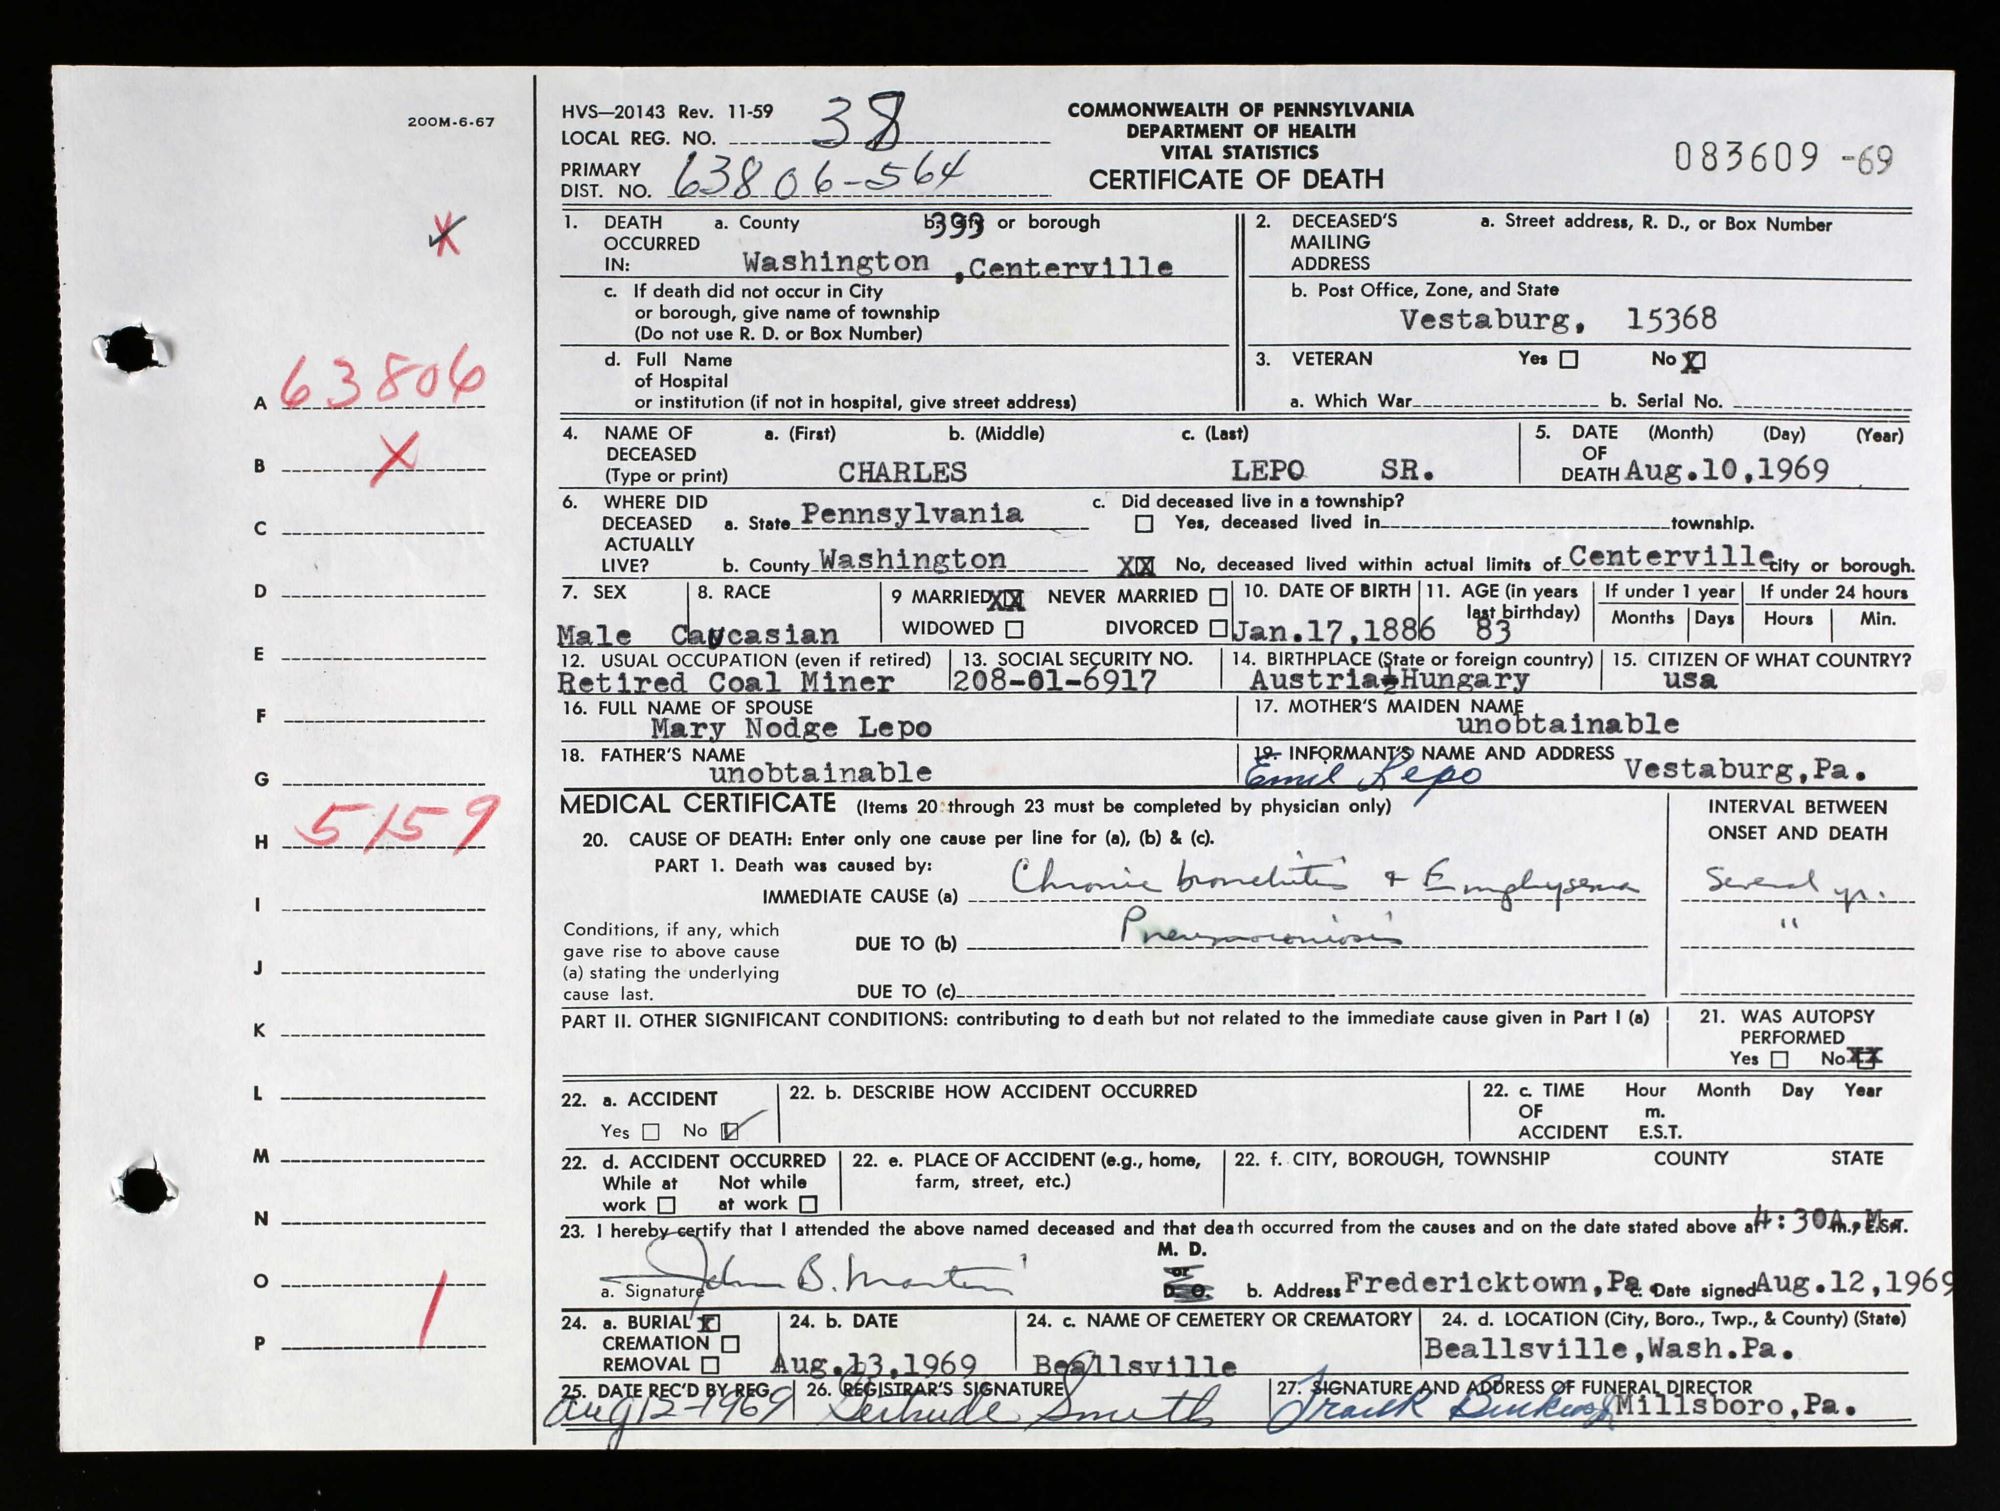 200M-6-67
HVS—20143 Rev. 11-59
LOCAL REG. NO. 38
PRIMARY DIST. NO. 63806-564
COMMONWEALTH OF PENNSYLVANIA
DEPARTMENT OF HEALTH
VITAL STATISTICS
CERTIFICATE OF DEATH
083609 -69
A 63806
B X
C
D
E
F
G
H 5159
I
J
K
L
M
N
O
P 1
1. DEATH OCCURRED IN: a. County Washington
b. City or borough 393 , Centerville
c. If death did not occur in City
or borough, give name of township
(Do not use R. D. or Box Number)
d. Full Name
of Hospital
or institution (if not in hospital, give street address)
2. DECEASED'S MAILING ADDRESS a. Street address, R. D., or Box Number
b. Post Office, Zone, and State
Vestaburg, 15368
3. VETERAN Yes No X
a. Which War b. Serial No.
4. NAME OF DECEASED (Type or print) a. (First) b. (Middle) c. (Last)
CHARLES LEPO SR.
5. DATE OF DEATH (Month) (Day) (Year)
Aug.10,1969
6. WHERE DID DECEASED ACTUALLY LIVE?
a. State Pennsylvania
b. County Washington
c. Did deceased live in a township?
Yes, deceased lived in township.
XX No, deceased lived within actual limits of Centerville city or borough.
7. SEX Male
8. RACE Caucasian
9 MARRIED XX NEVER MARRIED
WIDOWED DIVORCED
10. DATE OF BIRTH Jan.17,1886
11. AGE (in years last birthday) 83
If under 1 year Months Days
If under 24 hours Hours Min.
12. USUAL OCCUPATION (even if retired)
Retired Coal Miner
13. SOCIAL SECURITY NO.
208-01-6917
14. BIRTHPLACE (State or foreign country)
Austria-Hungary
15. CITIZEN OF WHAT COUNTRY?
usa
16. FULL NAME OF SPOUSE
Mary Nodge Lepo
17. MOTHER'S MAIDEN NAME
unobtainable
18. FATHER'S NAME
unobtainable
19. INFORMANT'S NAME AND ADDRESS
Emil Lepo Vestaburg,Pa.
MEDICAL CERTIFICATE (Items 20 through 23 must be completed by physician only)
20. CAUSE OF DEATH: Enter only one cause per line for (a), (b) & (c).
INTERVAL BETWEEN
ONSET AND DEATH
PART 1. Death was caused by:
IMMEDIATE CAUSE (a) Chronic bronchitis + Emphysema Several yr.
Conditions, if any, which
gave rise to above cause
(a) stating the underlying
cause last.
DUE TO (b) Pneumoconiosis "
DUE TO (c)
PART II. OTHER SIGNIFICANT CONDITIONS: contributing to death but not related to the immediate cause given in Part I (a)
21. WAS AUTOPSY
PERFORMED
Yes No XX
22. a. ACCIDENT
Yes No ✓
22. b. DESCRIBE HOW ACCIDENT OCCURRED
22. c. TIME OF ACCIDENT Hour Month Day Year
m.
E.S.T.
22. d. ACCIDENT OCCURRED
While at work Not while at work
22. e. PLACE OF ACCIDENT (e.g., home,
farm, street, etc.)
22. f. CITY, BOROUGH, TOWNSHIP COUNTY STATE
23. I hereby certify that I attended the above named deceased and that death occurred from the causes and on the date stated above at 4:30A.M. m., E.S.T.
a. Signature John B. Martin M. D. or D. O.
b. Address Fredericktown,Pa. c. Date signed Aug.12,1969
24. a. BURIAL X
CREMATION
REMOVAL
24. b. DATE
Aug.13,1969
24. c. NAME OF CEMETERY OR CREMATORY
Beallsville
24. d. LOCATION (City, Boro., Twp., & County) (State)
Beallsville,Wash.Pa.
25. DATE REC'D BY REG.
Aug 12-1969
26. REGISTRAR'S SIGNATURE
Gertrude Smith
27. SIGNATURE AND ADDRESS OF FUNERAL DIRECTOR
Frank Millsboro,Pa.